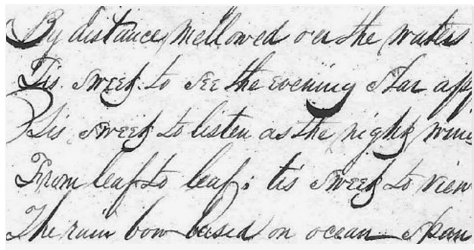 By distance mellowed o'er the waters
Tis sweet to see the evening star app
Tis sweet to listen as the night winds
From leaf to leaf; tis sweet to view
The rain bow based on ocean span